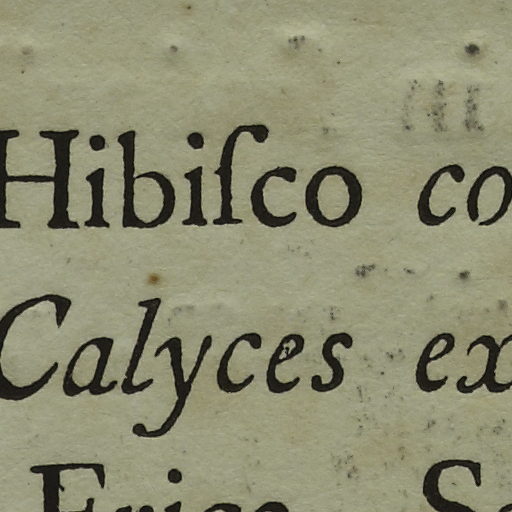 Hibiſco co
Calyces ex